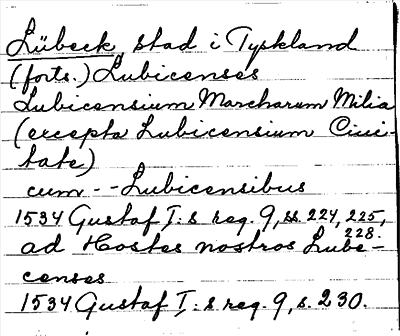 Lübeck, stad i Tyskland
(forts.) Lubicenses
Lubicensium Marcharum Milia
(excepta Lubicensium Civi-
tate)
cum - - Lubicensibus
1534 Gustaf I:s reg. 9, ss. 224, 225,
228.
ad Hostes nostros Lube-
censes
1534 Gustaf I:s reg. 9, s. 230.